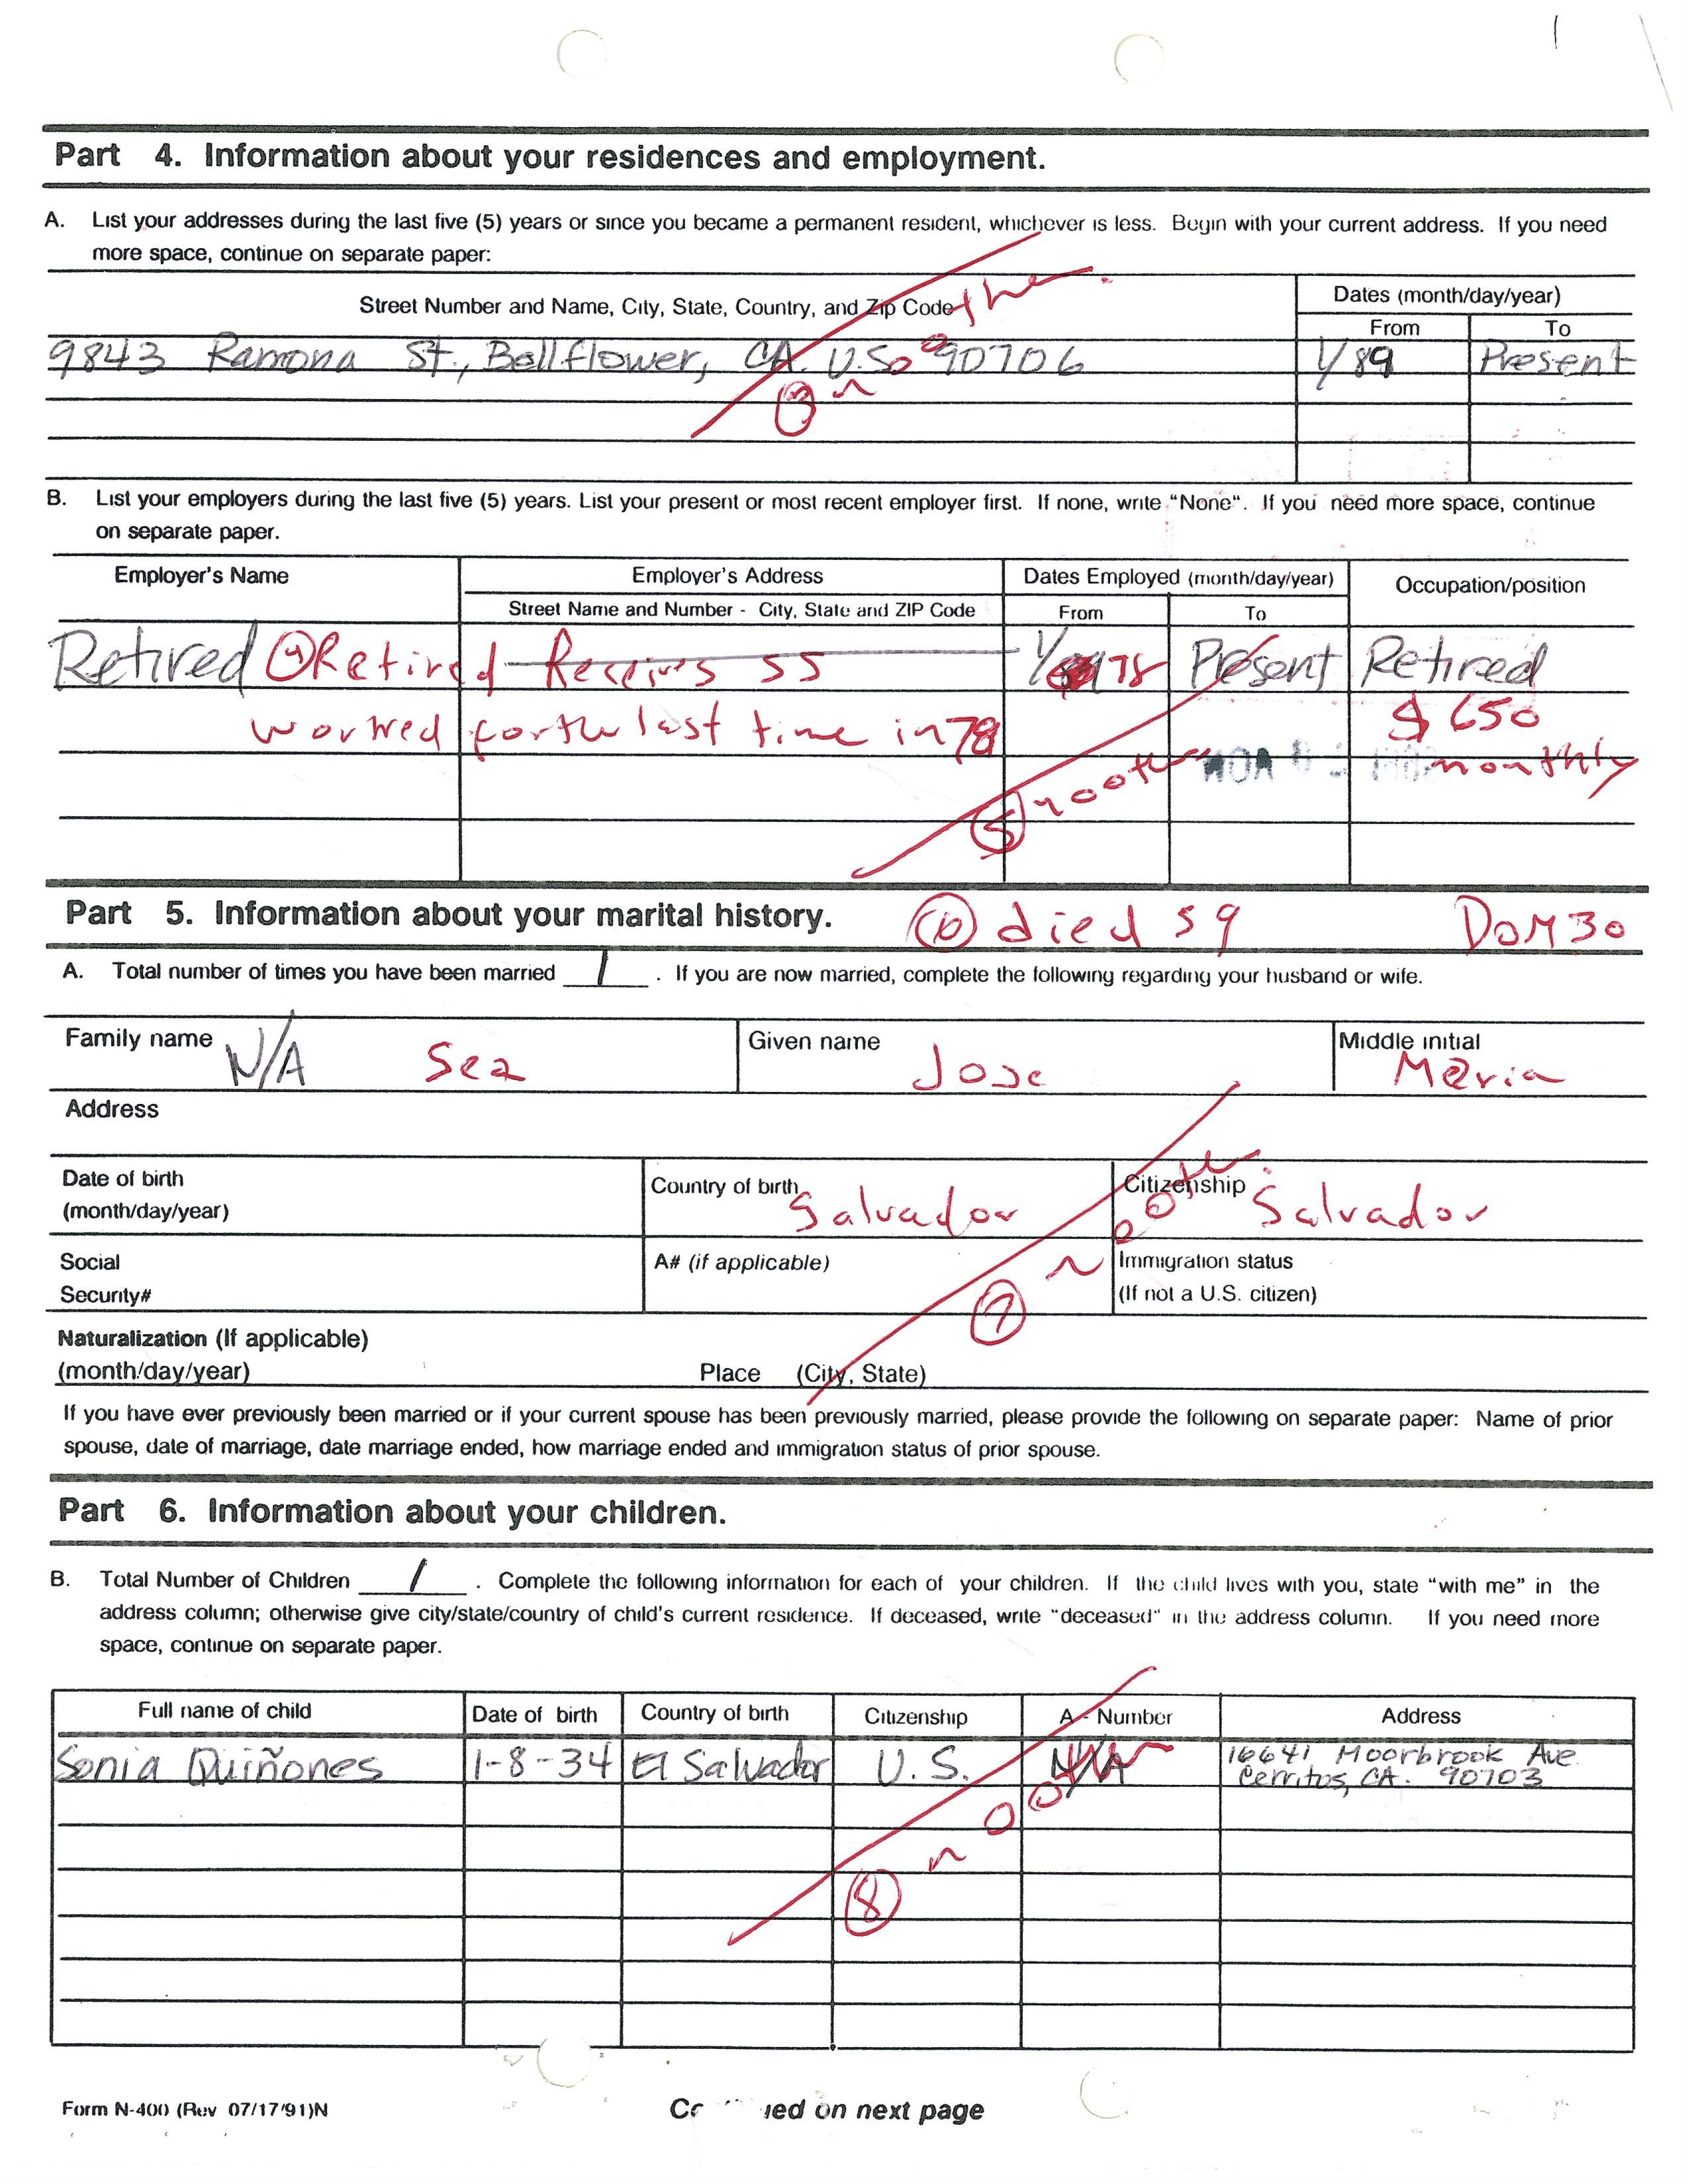 Part 4. Information about your residences and employment.
A. List your addresses during the last five (5) years or since you became a permanent resident, whichever is less. Begin with your current address. If you need
more space, continue on separate paper:
Street Number and Name, City, State, Country, and Zip Code
Dates (month/day/year)
From To
no other
9843 Ramona St., Bellflower, CA. U.S. 90706 1/89 Present
3
B. List your employers during the last five (5) years. List your present or most recent employer first. If none, write "None". If you need more space, continue
on separate paper.
Employer's Name Employer's Address Dates Employed (month/day/year) Occupation/position
Street Name and Number - City, State and ZIP Code From To
Retired 4 Retired Receives SS 1/78 Present Retired
worked for the last time in 78 $650
monthly
5 no other
Part 5. Information about your marital history. 6 died 59 DOM 30
A. Total number of times you have been married 1. If you are now married, complete the following regarding your husband or wife.
Family name N/A Given name Jose Middle initial Maria
Address
Date of birth
(month/day/year)
Country of birth Salvador
Citizenship Salvador
Social
Security#
A# (if applicable)
Immigration status
(If not a U.S. citizen)
7 no other.
Naturalization (If applicable)
(month/day/year) Place (City, State)
If you have ever previously been married or if your current spouse has been previously married, please provide the following on separate paper: Name of prior
spouse, date of marriage, date marriage ended, how marriage ended and immigration status of prior spouse.
Part 6. Information about your children.
B. Total Number of Children 1. Complete the following information for each of your children. If the child lives with you, state "with me" in the
address column; otherwise give city/state/country of child's current residence. If deceased, write "deceased" in the address column. If you need more
space, continue on separate paper.
Full name of child Date of birth Country of birth Citizenship A - Number Address
Sonia Quiñones 1-8-34 El Salvador U.S. N/A 16641 Moorbrook Ave.
Cerritos, CA. 90703
8 no other
Form N-400 (Rev 07/17/91)N
on next page